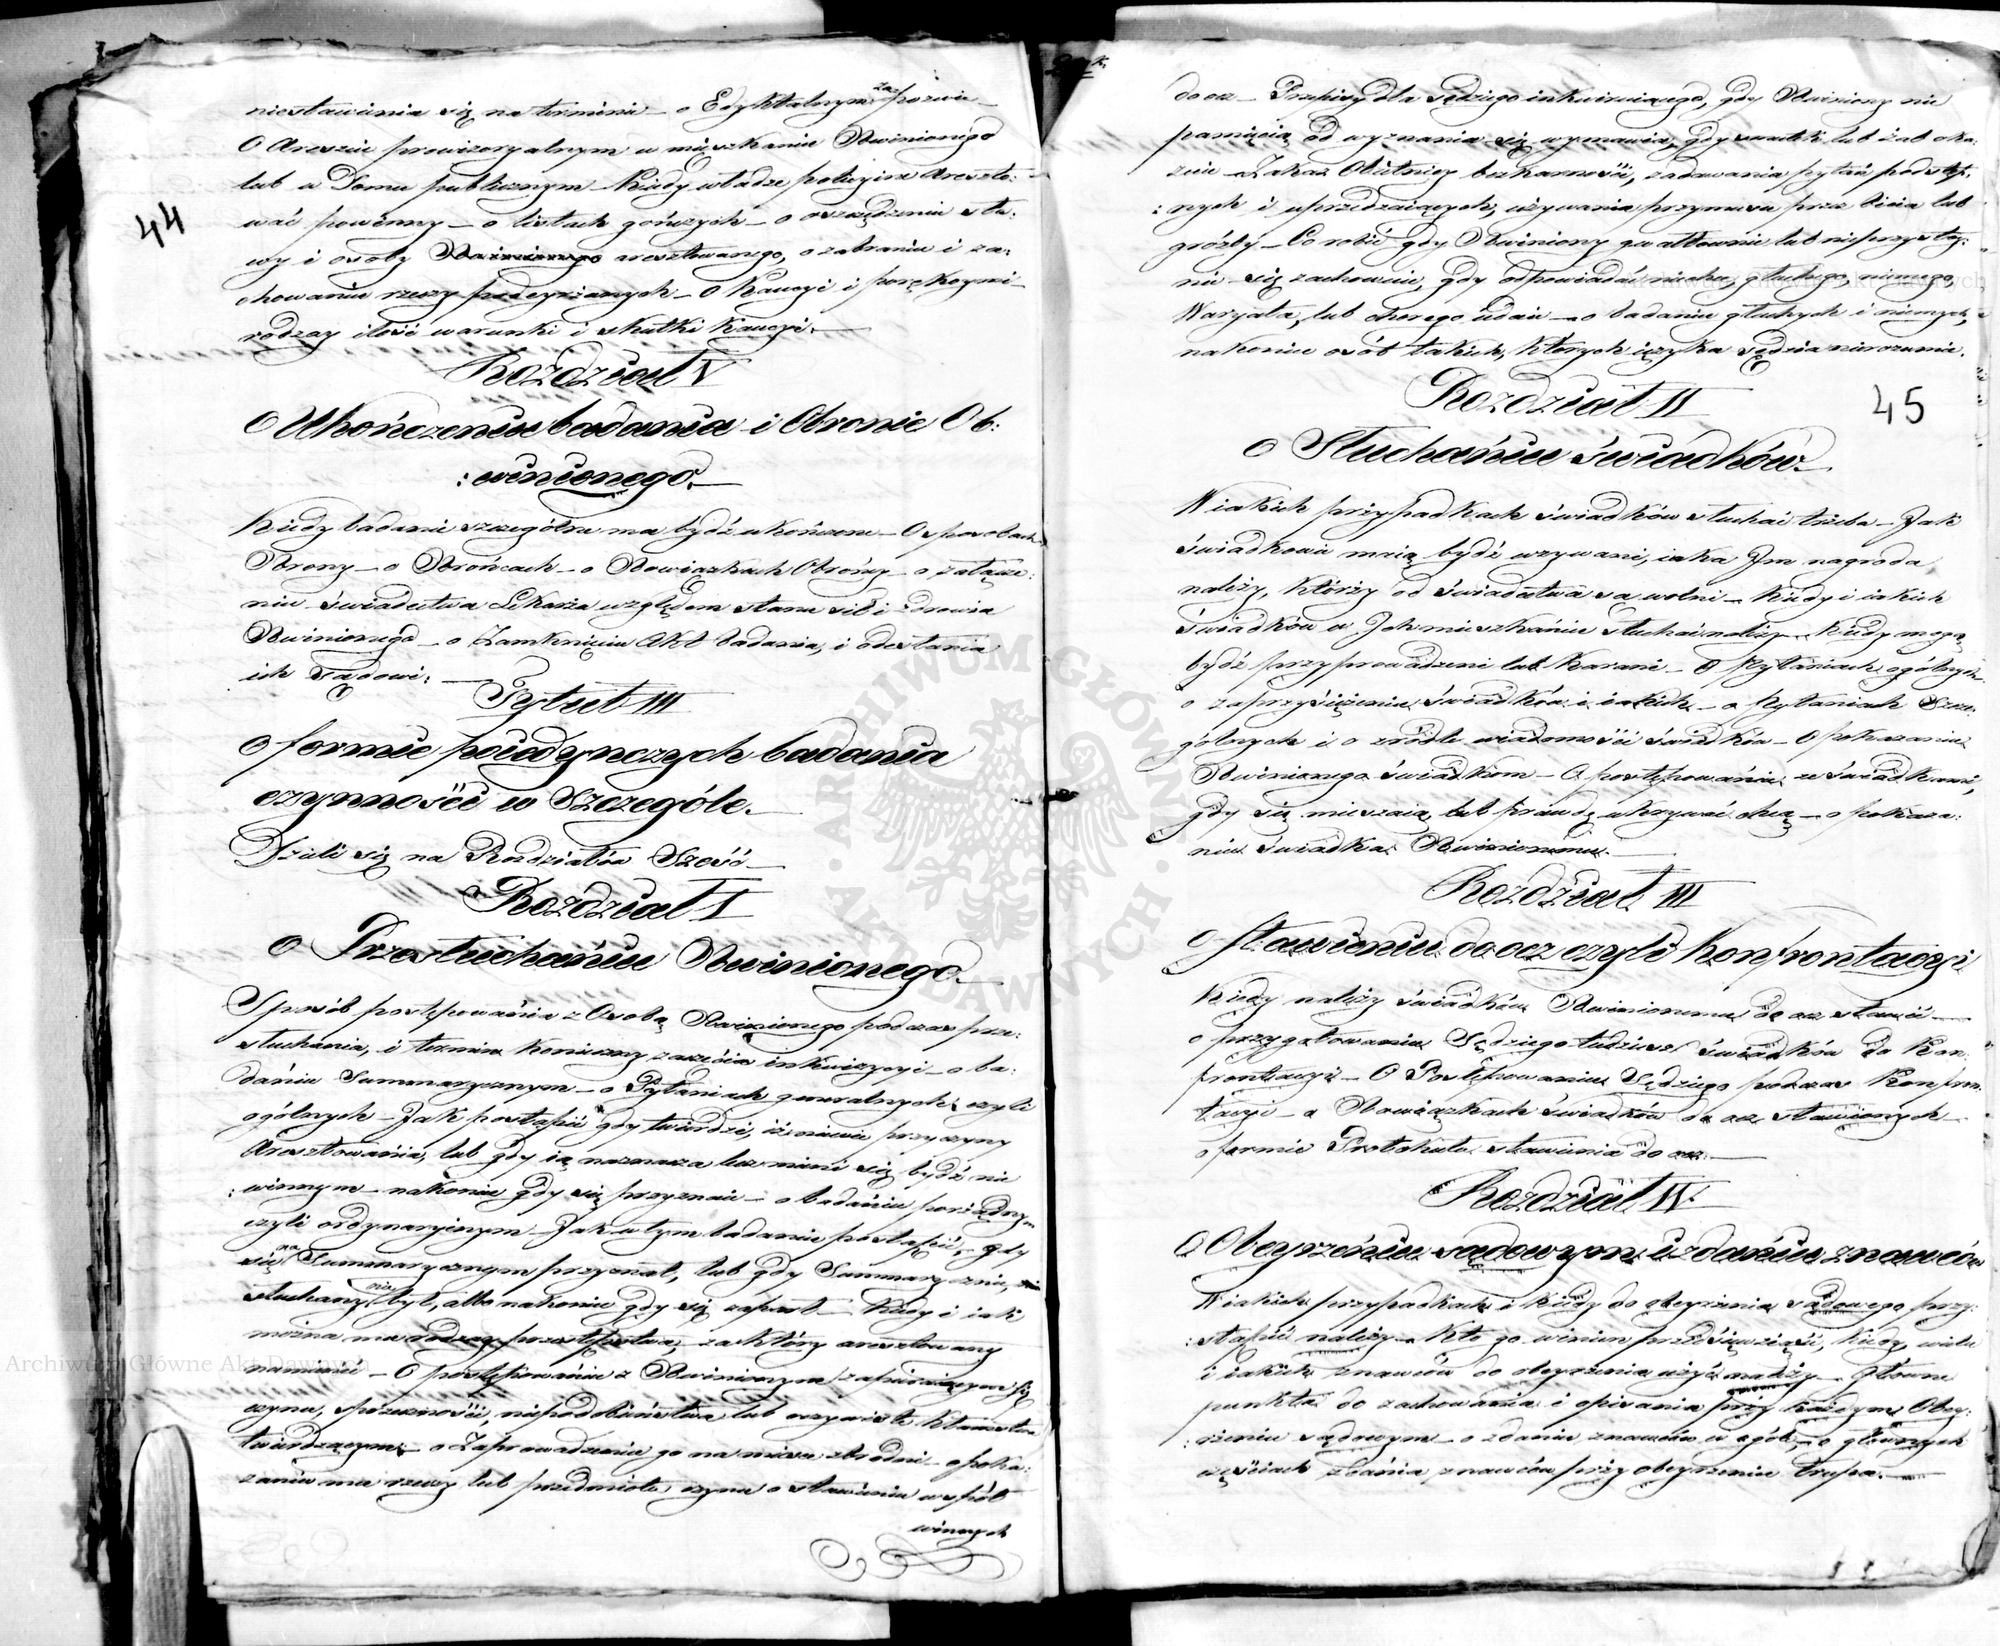 44
niestawienia się na terminie – o Edyktalnym zapozwie –
O Areszcie prowizoryalnym w mieszkaniu Obwinionego
lub w Domu publicznym – Kiedy władze policyine Areszto:
wać powinny – o listach gończych – o oszczędzeniu sła:
wy i osoby Obwinionego aresztowanego, o zabraniu i za:
chowaniu rzeczy podeyrzanych – O Kaucyi i poręką
rodzay ilość warunki i skutki Kaucyi. –
Rozdział V
O Ukończeniu badania i Obronie Ob:
:winionego. –
Kiedy badanie szczególne ma bydź ukończone – O sposobach
Obrony – o Obrońcach – o Obowiązkach Obrońcy – o załącze:
niu świadectwa Lekarza względem stanu sił i zdrowia
Obwinionego – o Zamknięciu Akt badania, i odesłaniu
ich Sądowi. –
Tytuł III
O formie poiedynczych badania
czynności w Szczególe. –
Dzieli się na Rozdziałów Sześć –
Rozdział I
O Przesłuchaniu Obwinionego. –
Sposób postępowania z Osobą Obwinionego podczas prze:
słuchania, i termin konieczny zaczęcia inkwizycyi – o ba:
daniu Summarycznym – o Pytaniach generalnych czyli
ogólnych – Jak postąpić gdy twierdzi, iż nie wie przyczyny
Aresztowania, lub gdy ią naznacza lecz mieni się bydź nie
:winnym – nakoniec gdy się przyznaie – o badaniu porządnym
czyli ordynaryinym – Jak w tym badaniu postąpić, gdy
się na Summarycznym przyznał, lub gdy Summarycznie
słuchany nie był, albo nakoniec gdy się zaparł – Kiedy i iak
można mu rodzay przestępstwa, za który aresztowany
namienić – O postępowaniu z Obwinionym zapieraiącym się
czynu, sprzeczności, niepodobieństwa lub oczywiste kłamstwa
twierdzącym – o Zaprowadzeniu go na mieysce zbrodni – o poka:
zaniu mu rzeczy lub przedmiotu czynu o stawieniu współ
winnych
45
do ocz – Przepisy dla Sędziego inkwiruiącego, gdy Obwiniony nie
pamięcią od wyznania się wymawia, gdy smutek lub żal oka:
zuie – Zakaz Obietnicy bezkarności, zadawania pytań podstęp:
:nych i uprzedzaiących, używania przymusu przez bicia lub
groźby – Co robić gdy Obwiniony gwałtownie lub nieprzystoy:
nie się zachowuie, gdy odpowiadać niechce, głuchego, niemego,
Waryata, lub chorego udaie – o badaniu głuchych i niemych,
nakoniec osób takich, których ięzyka Sędzia nierozumie.
Rozdział II
O Słuchaniu świadków –
W iakich przypadkach świadków słuchać trzeba – Jak
świadkowie maią bydź wzywani, iaka Jm nagroda
należy, którzy od świadectwa są wolni – Kiedy i iakich
świadków w Jch mieszkaniu słuchać należy – Kiedy mogą
bydź przyprowadzeni lub karani – O Pytaniach ogólnych
o zaprzysiężeniu świadków i iakich – o Pytaniach Szcze:
gólnych i o źródle wiadomości świadków – O pokazaniu
Obwinionego świadkom – O postępowaniu ze świadkami,
gdy się mieszaią, lub prawdę ukrywać chcą – o pokaza:
niu świadka Obwinionemu. –
Rozdział III
O Stawieniu do ocz czyli Konfrontacyi
Kiedy należy świadków Obwinionemu do ocz stawić –
o przygotowaniu Sędziego tudzież świadków do Kon:
frontacyi – O Postępowaniu Sędziego podczas Konfron:
tacyi – o Obowiązkach świadków do ocz stawionych –
o formie Protokułu stawienia do ocz. –
Rozdział IV.
O Obeyrzeniu sądowym i zdaniu znawców
W iakich przypadkach i kiedy do obeyrzenia sądowego przy:
:stąpić należy – Kto go winien przedsięwziąść, kiedy, wielu
i iakich znawców do obeyrzenia użyć należy – Główne
punkta do zachowania i opisania przy każdym Obey:
:rzeniu sądowym – o zdaniu znawców w ogóle – o głównych
częściach zdania znawców przy obeyrzeniu trupa. –
Archiwum Główne Akt Dawnych
ARCHIWUM GŁÓWNE AKT DAWNYCH